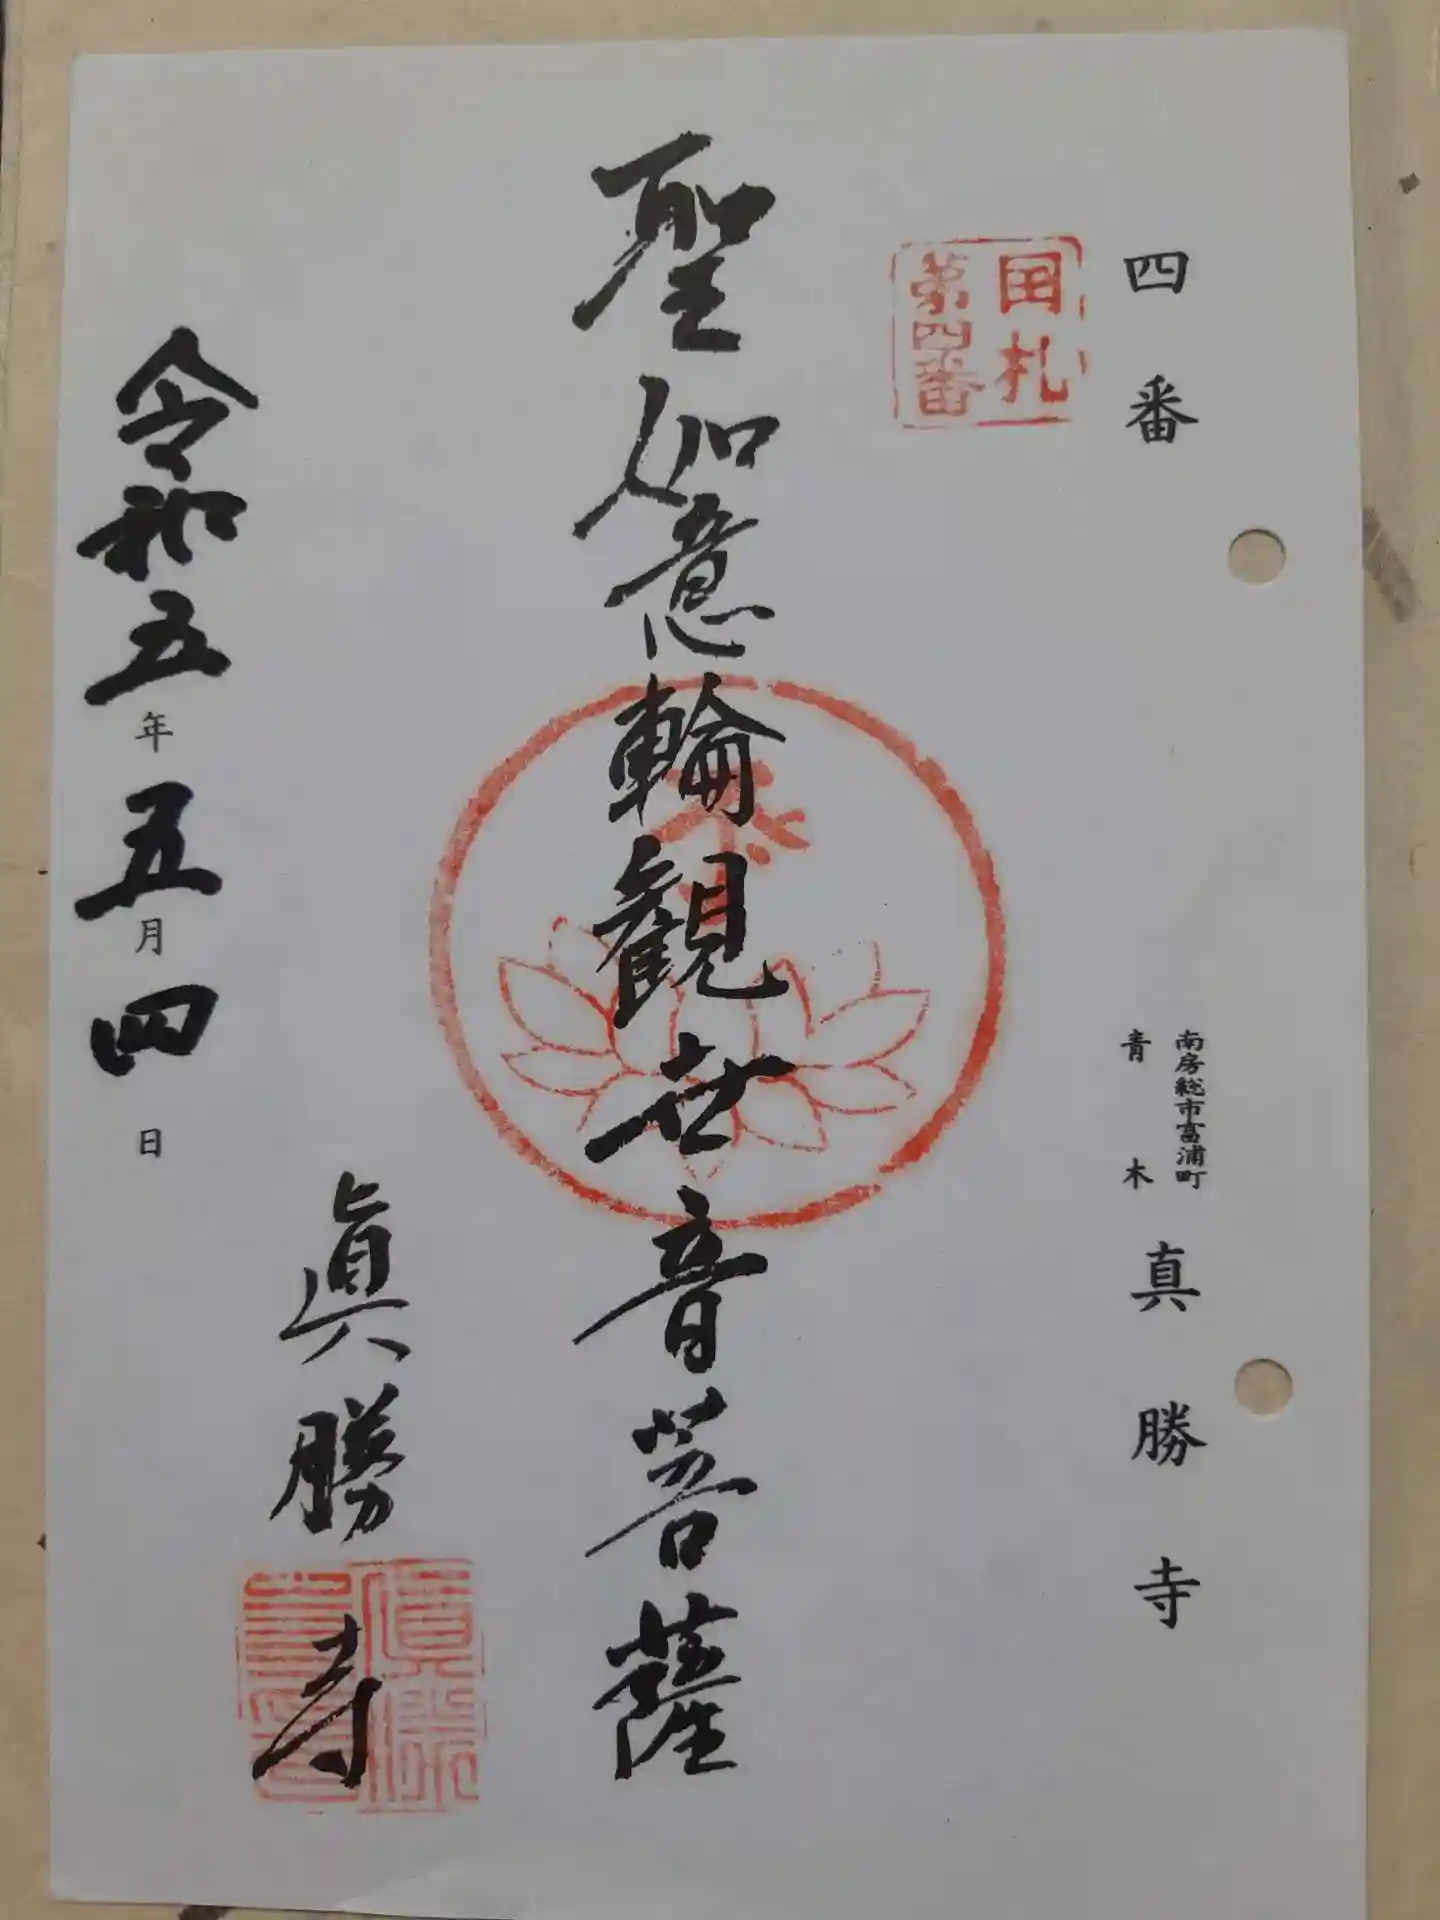 四番
南房総市富浦町
青木
真勝寺
国札
第四番
聖如意輪観世音菩薩
眞勝寺
令和五年五月四日